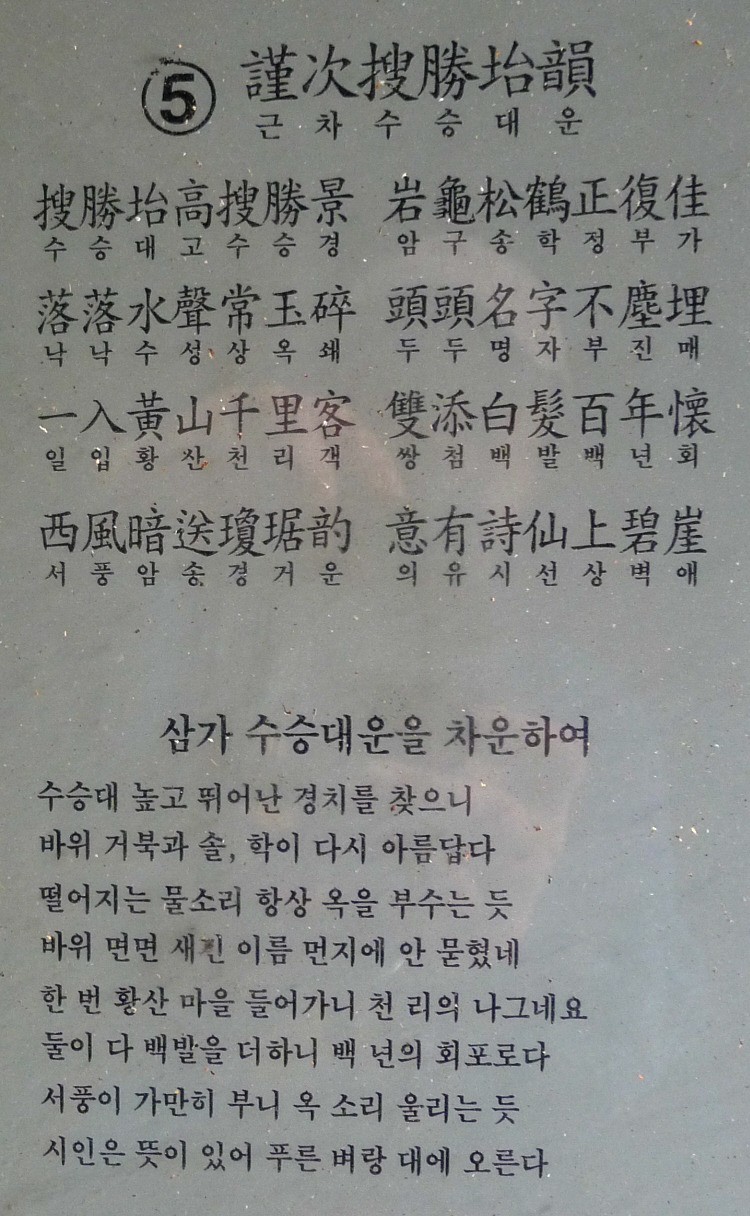 ⑤ 謹次搜勝坮韻
근차수승대운
搜勝坮高搜勝景 岩龜松鶴正復佳
수승대고수승경 암구송학정부가
落落水聲常玉碎 頭頭名字不塵埋
낙낙수성상옥쇄 두두명자부진매
一入黃山千里客 雙添白髮百年懷
일입황산천리객 쌍첨백발백년회
西風暗送瓊琚韵 意有詩仙上碧崖
서풍암송경거운 의유시선상벽애
삼가 수승대운을 차운하여
수승대 높고 뛰어난 경치를 찾으니
바위 거북과 솔, 학이 다시 아름답다
떨어지는 물소리 항상 옥을 부수는 듯
바위 면면 새긴 이름 먼지에 안 묻혔네
한 번 황산 마을 들어가니 천 리의 나그네요
둘이 다 백발을 더하니 백 년의 회포로다
서풍이 가만히 부니 옥 소리 울리는 듯
시인은 뜻이 있어 푸른 벼랑 대에 오른다